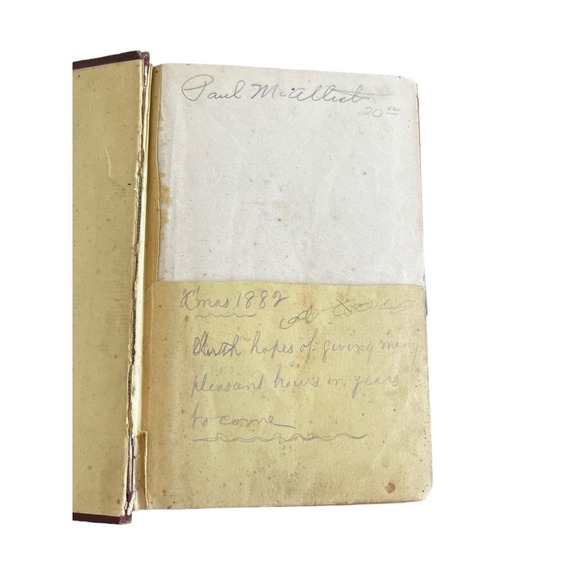 Paul McAllist
20
X'mas 1882
With hopes of giving many
pleasant hours in years
to come